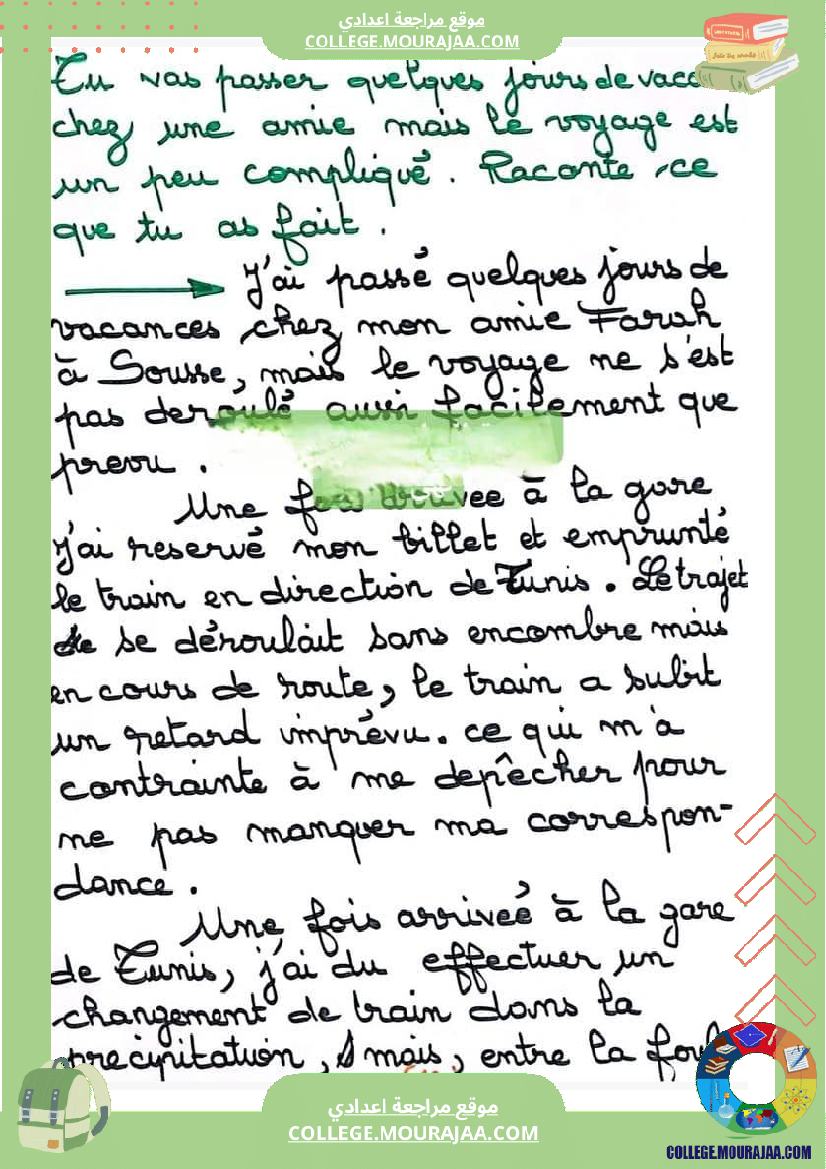 موقع مراجعة اعدادي
COLLEGE.MOURAJAA.COM
Tu vas passer quelques jours de vaca
chez une amie mais le voyage est
un peu compliqué. Raconte ce
que tu as fait.
J'ai passé quelques jours de
vacances chez mon amie Farah
à Sousse, mais le voyage ne s'est
pas deroulé aussi facilement que
prevu.
Une fois arrivee à la gare
j'ai reservé mon billet et emprunté
le train en direction de Tunis. Le trajet
se déroulait sans encombre mais
en cours de route, le train a subit
un retard imprévu. ce qui m'a
contrainte à me depêcher pour
ne pas manquer ma correspon-
dance.
Une fois arriveé à la gare
de Tunis, j'ai du effectuer un
changement de train dans la
precipitation, mais, entre la foul
موقع مراجعة اعدادي
COLLEGE.MOURAJAA.COM
COLLEGE.MOURAJAA.COM